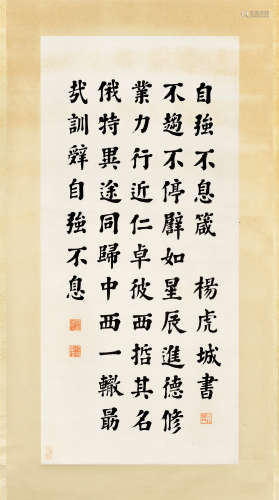 自強不息箴　楊虎城書
不趨不停譬如星辰進德修
業力行近仁卓彼西哲其名
俄特異途同歸中西一轍勗
哉訓辭自強不息